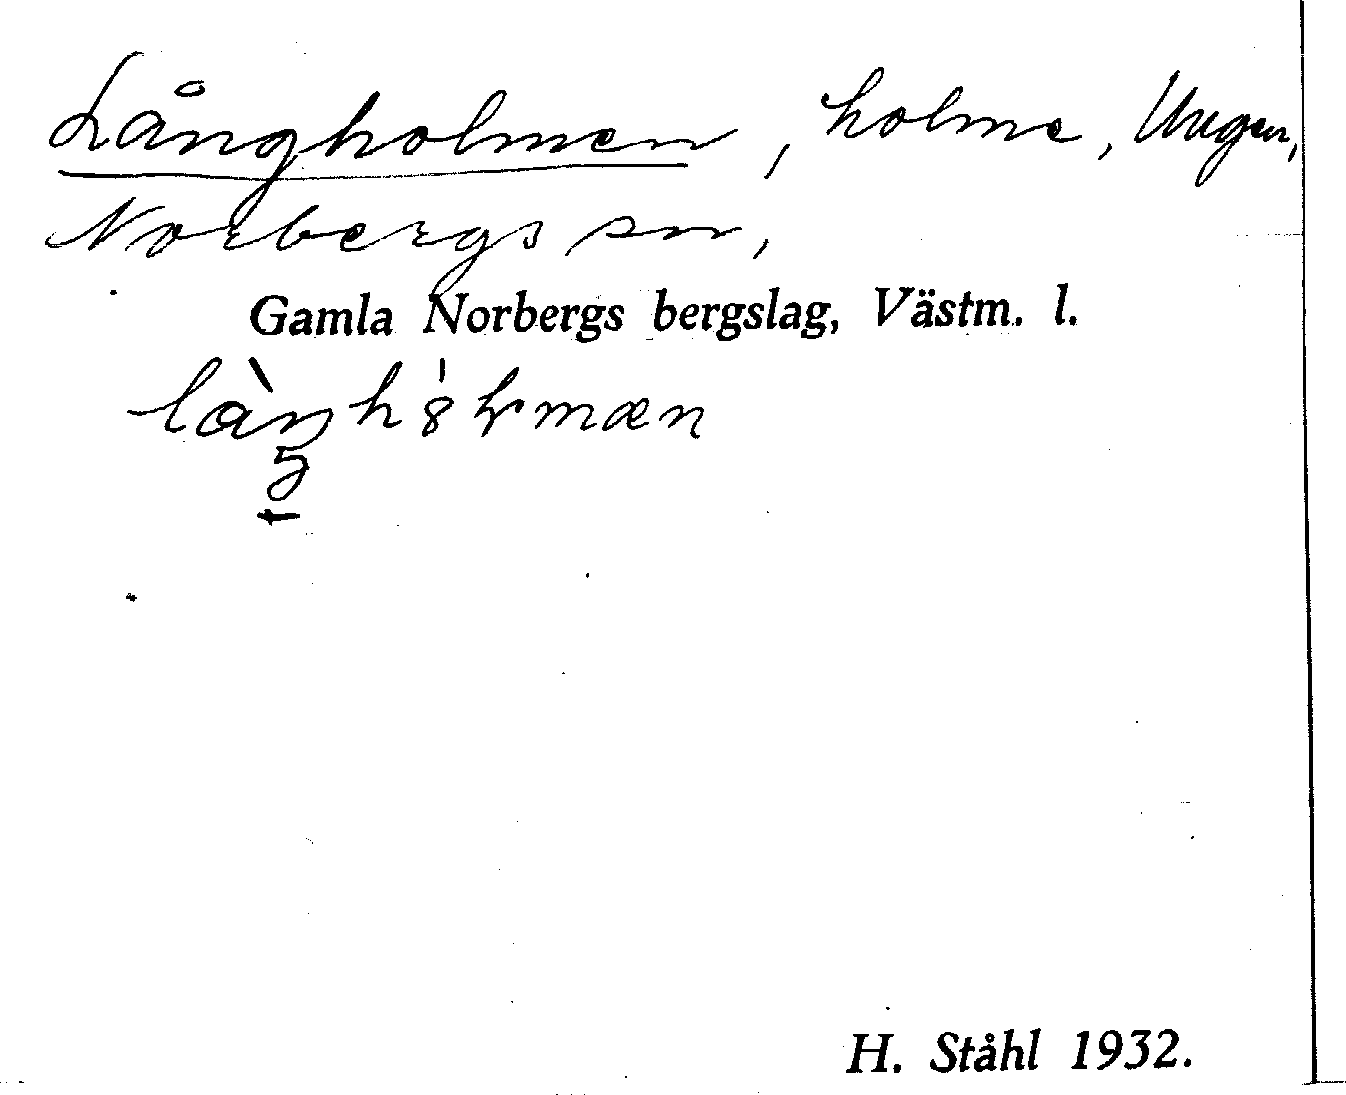 Långholmen, holme, Ungen,
Norbergs sn,
Gamla Norbergs bergslag, Västm. l.
H. Ståhl 1932.